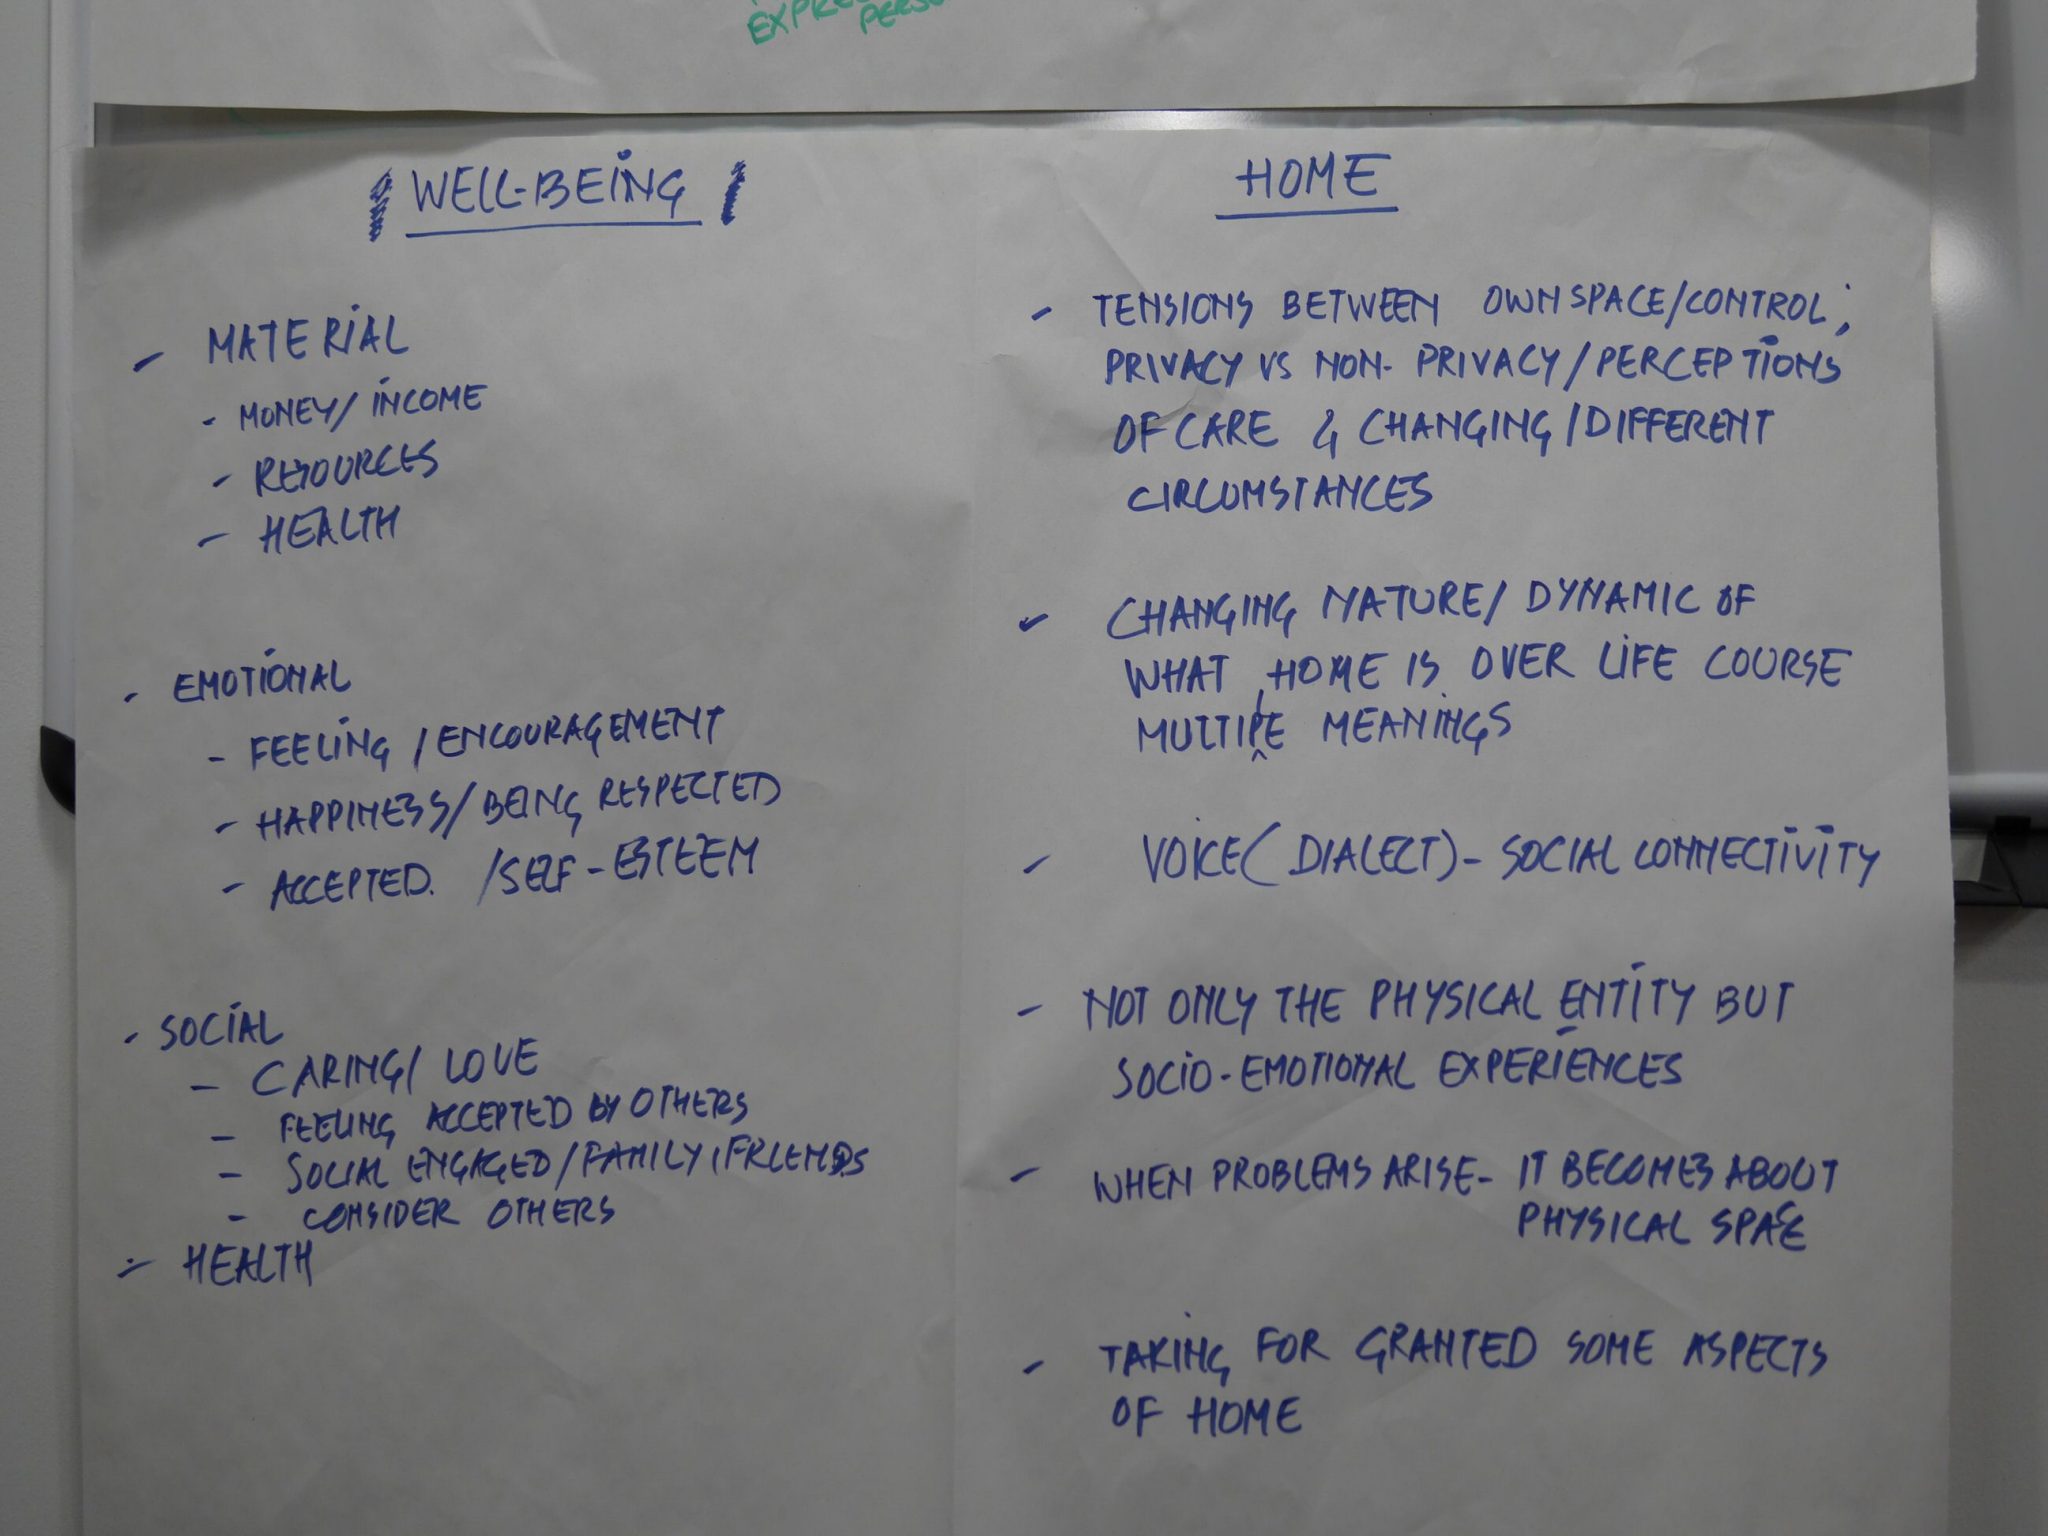 WELL-BEING
- MATERIAL
- MONEY/INCOME
- RESOURCES
- HEALTH
- EMOTIONAL
- FEELING/ENCOURAGEMENT
- HAPPINESS/BEING RESPECTED
- ACCEPTED. /SELF-ESTEEM
- SOCIAL
- CARING/LOVE
- FEELING ACCEPTED BY OTHERS
- SOCIAL ENGAGED/FAMILY, FRIENDS
- CONSIDER OTHERS
- HEALTH
HOME
- TENSIONS BETWEEN OWN SPACE/CONTROL;
PRIVACY VS NON-PRIVACY/PERCEPTIONS
OF CARE & CHANGING/DIFFERENT
CIRCUMSTANCES
- CHANGING NATURE/DYNAMIC OF
WHAT HOME IS OVER LIFE COURSE
MULTIPLE MEANINGS
- VOICE (DIALECT) - SOCIAL CONNECTIVITY
- NOT ONLY THE PHYSICAL ENTITY BUT
SOCIO-EMOTIONAL EXPERIENCES
- WHEN PROBLEMS ARISE - IT BECOMES ABOUT
PHYSICAL SPACE
- TAKING FOR GRANTED SOME ASPECTS
OF HOME